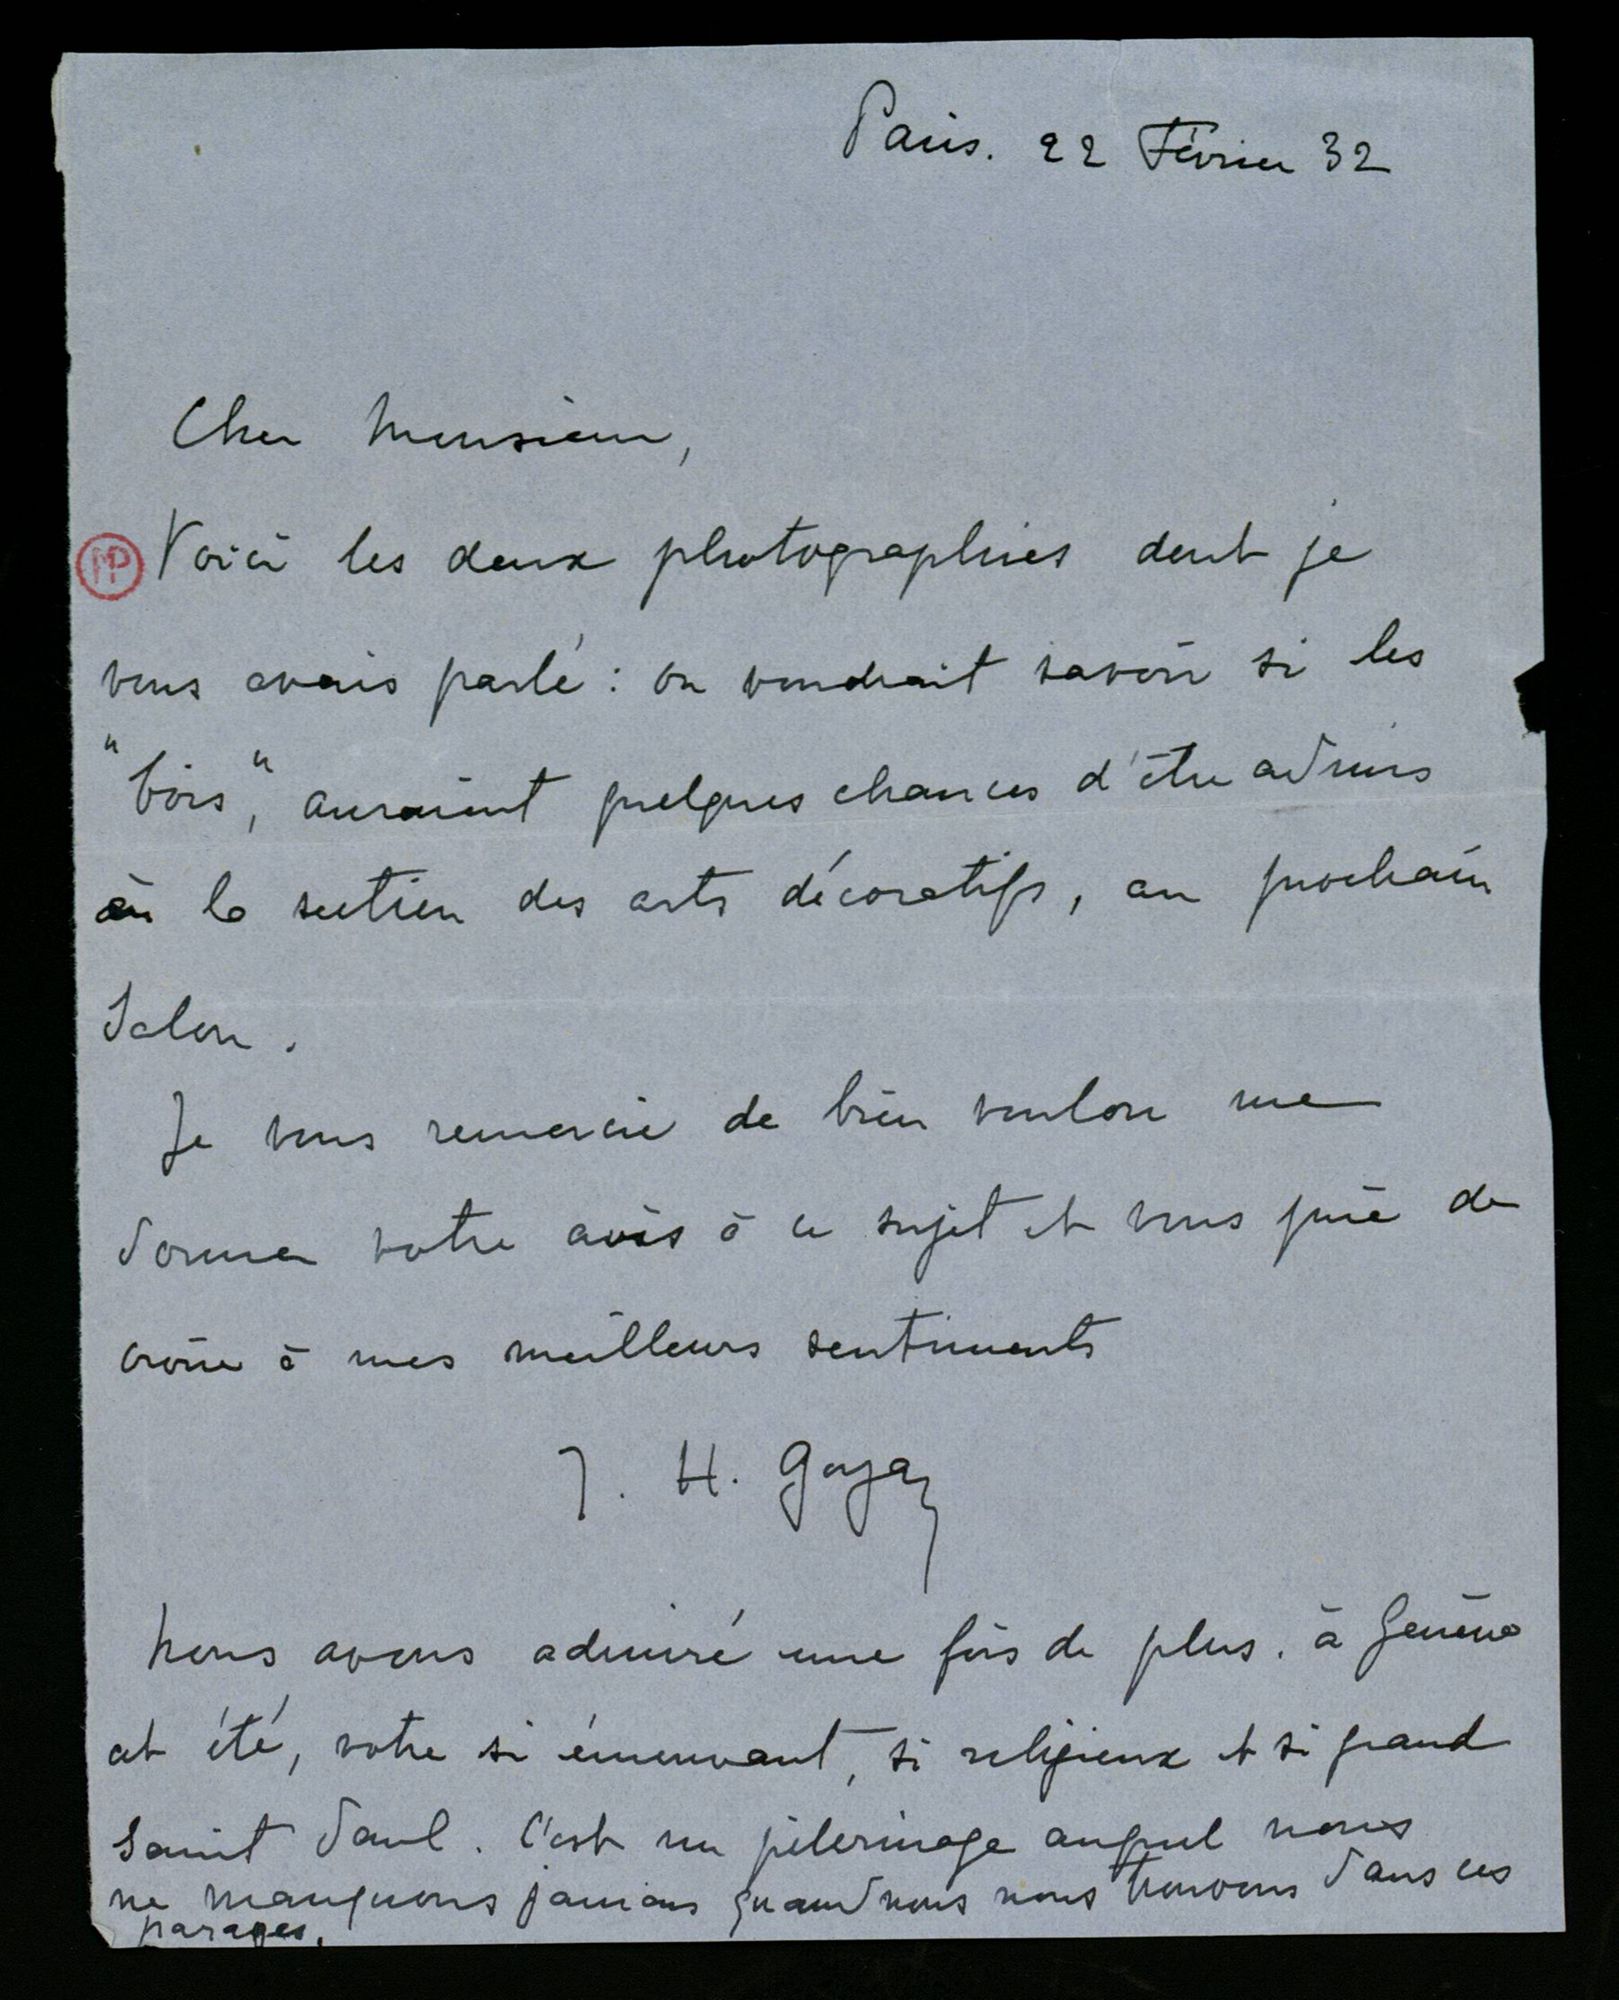 Paris. 22 Février 32
Cher Monsieur,
MP
Voici les deux photographies dont je
vous avais parlé : on voudrait savoir si les
"bois", auraient quelques chances d'être admis
à la section des arts décoratifs, au prochain
Salon.
Je vous remercie de bien vouloir me
donner votre avis à ce sujet et vous prie de
croire à mes meilleurs sentiments
J. H. Goyaz
Nous avons admiré une fois de plus. à Genève
cet été, votre si émouvant, si religieux et si grand
Saint Paul. C'est un pèlerinage auquel nous
ne manquons jamais quand nous nous trouvons dans ces
parages.